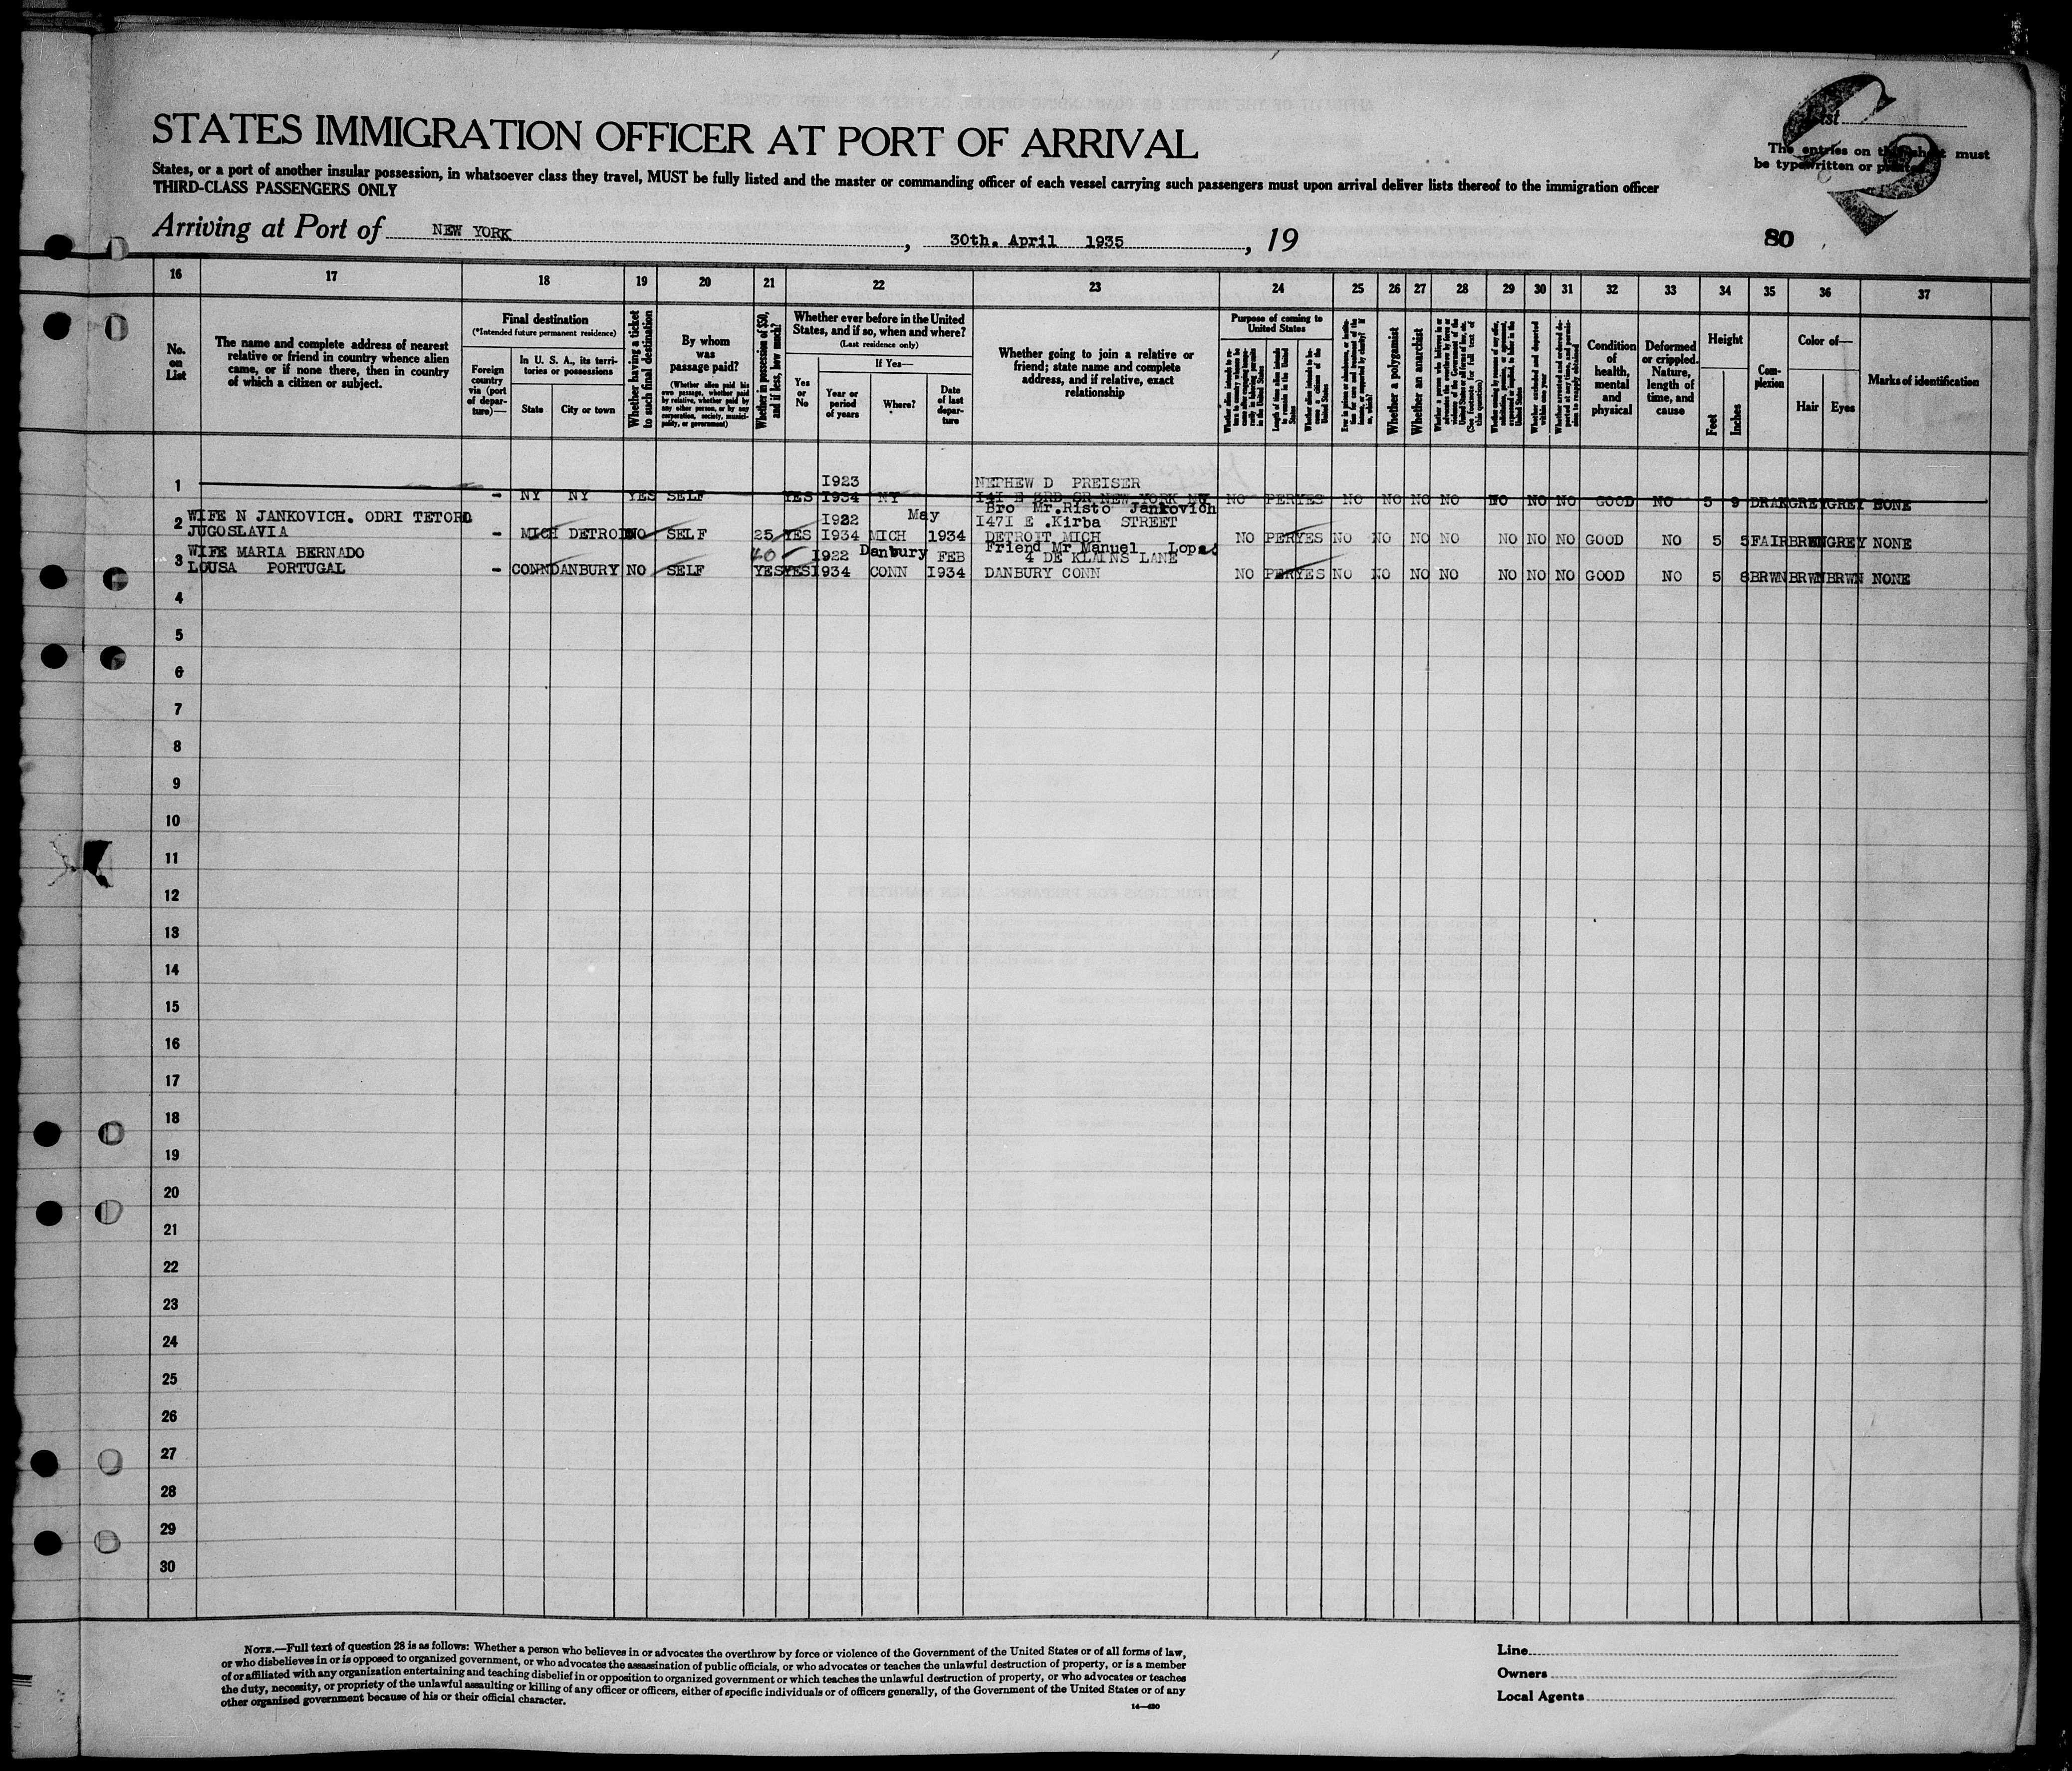 STATES IMMIGRATION OFFICER AT PORT OF ARRIVAL
List
The entries on this sheet must
be typewritten or printed
2
States, or a port of another insular possession, in whatsoever class they travel, MUST be fully listed and the master or commanding officer of each vessel carrying such passengers must upon arrival deliver lists thereof to the immigration officer
THIRD-CLASS PASSENGERS ONLY
Arriving at Port of NEW YORK, 30th. April 1935, 19
80
16 17 18 19 20 21 22 23 24 25 26 27 28 29 30 31 32 33 34 35 36 37
No. on List
The name and complete address of nearest
relative or friend in country whence alien
came, or if none there, then in country
of which a citizen or subject.
Final destination
(*Intended future permanent residence)
Foreign country via (port of departure)—
In U. S. A., its territories or possessions
State
City or town
Whether having a ticket to such final destination
By whom was passage paid?
(Whether alien paid his own passage, whether paid by relative, whether paid by any other person, or by any corporation, society, municipality, or government)
Whether in possession of $50, and if less, how much?
Whether ever before in the United
States, and if so, when and where?
(Last residence only)
Yes or No
If Yes—
Year or period of years
Where?
Date of last departure
Whether going to join a relative or
friend; state name and complete
address, and if relative, exact
relationship
Purpose of coming to
United States
Length of time alien intends to remain in the United States
Whether alien intends to become a citizen of the United States
Whether a polygamist
Whether an anarchist
Condition of health, mental and physical
Deformed or crippled. Nature, length of time, and cause
Height
Feet
Inches
Complexion
Color of—
Hair
Eyes
Marks of identification
1 - NY NY YES SELF YES I923 I934 NY NEPHEW D PREISER
I4I E 3RD SR NEW YORK NY NO PER YES NO NO NO NO NO NO NO GOOD NO 5 9 DRAK GREY GREY NONE
2 WIFE N JANKOVICH. ODRI TETORD I922 May Bro Mr.Risto Jankovich
I47I E .Kirba STREET
JUGOSLAVIA - MICH DETROIT NO SELF 25 YES I934 MICH 1934 DETROIT MICH NO PER YES NO NO NO NO NO NO NO GOOD NO 5 5 FAIR BRWN GREY NONE
3 WIFE MARIA BERNADO 40 I922 Danbury FEB Friend Mr Manuel Lopes
4 DE KLAINS LANE
LOUSA PORTUGAL - CONN DANBURY NO SELF YES YES I934 CONN I934 DANBURY CONN NO PER YES NO NO NO NO NO NO NO GOOD NO 5 8 BRWN BRWN BRWN NONE
4
5
6
7
8
9
10
11
12
13
14
15
16
17
18
19
20
21
22
23
24
25
26
27
28
29
30
NOTE.—Full text of question 28 is as follows: Whether a person who believes in or advocates the overthrow by force or violence of the Government of the United States or of all forms of law,
or who disbelieves in or is opposed to organized government, or who advocates the assassination of public officials, or who advocates or teaches the unlawful destruction of property, or is a member
of or affiliated with any organization entertaining and teaching disbelief in or opposition to organized government or which teaches the unlawful destruction of property, or who advocates or teaches
the duty, necessity, or propriety of the unlawful assaulting or killing of any officer or officers, either of specific individuals or of officers generally, of the Government of the United States or of any
other organized government because of his or their official character.
14—430
Line
Owners
Local Agents